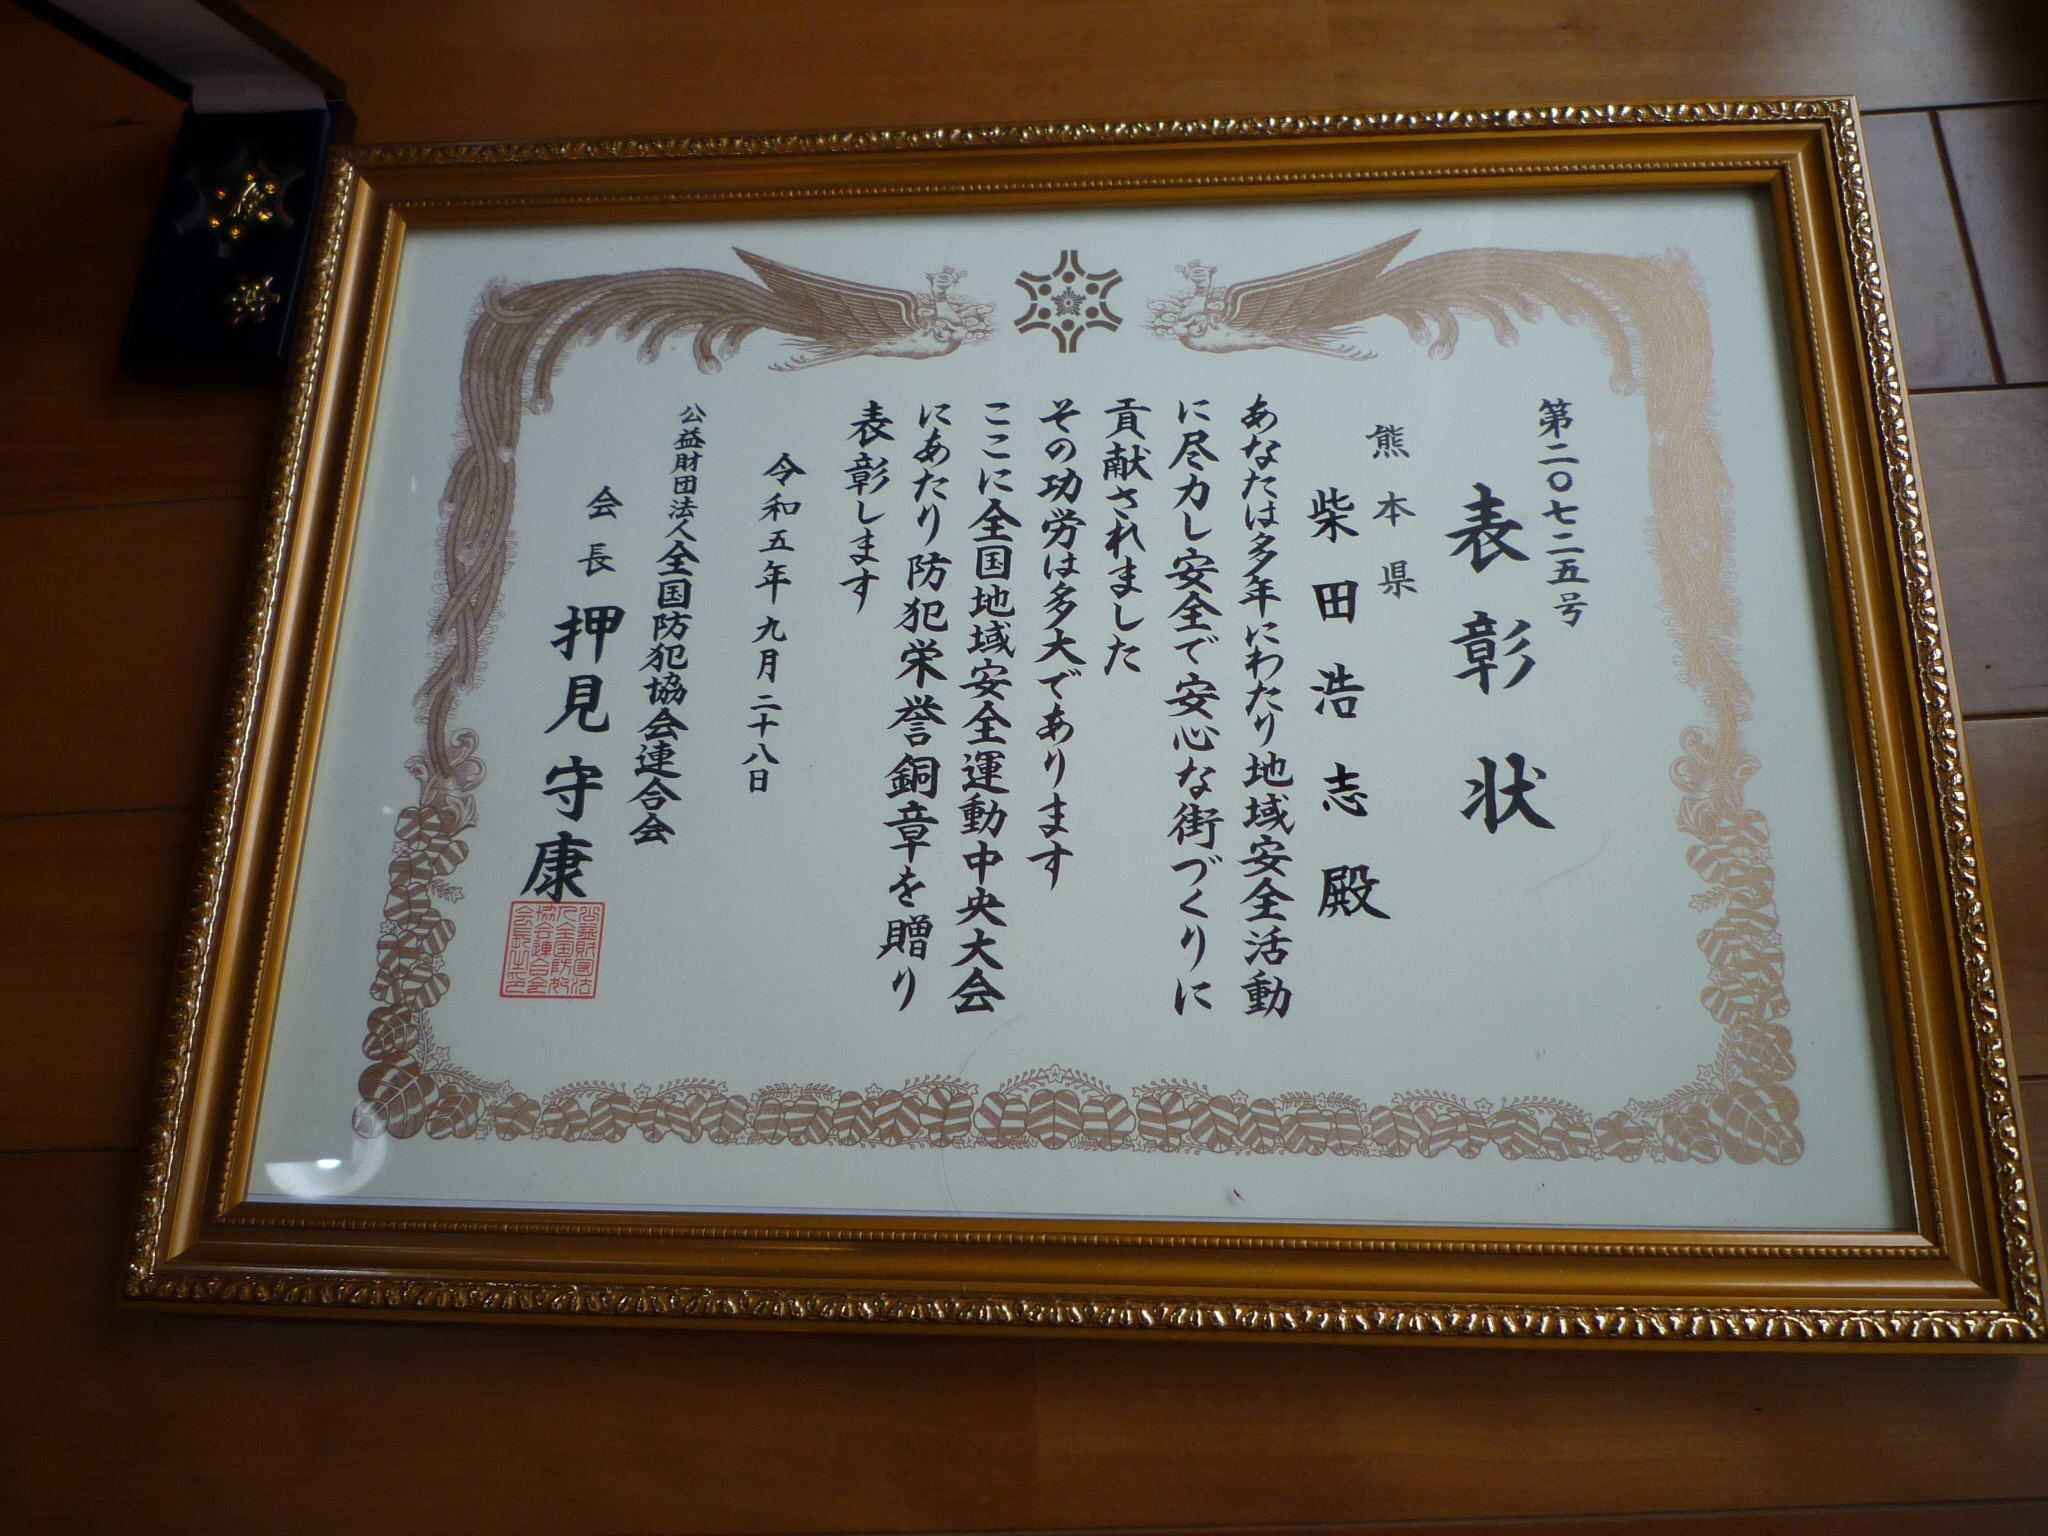 第二〇七二五号
表彰状
熊本県
柴田浩志殿
あなたは多年にわたり地域安全活動
に尽力し安全で安心な街づくりに
貢献されました
その功労は多大であります
ここに全国地域安全運動中央大会
にあたり防犯栄誉銅章を贈り
表彰します
令和五年九月二十八日
公益財団法人全国防犯協会連合会
会長 押見守康
公益財団法
人全国防犯
協会連合会
会長之印